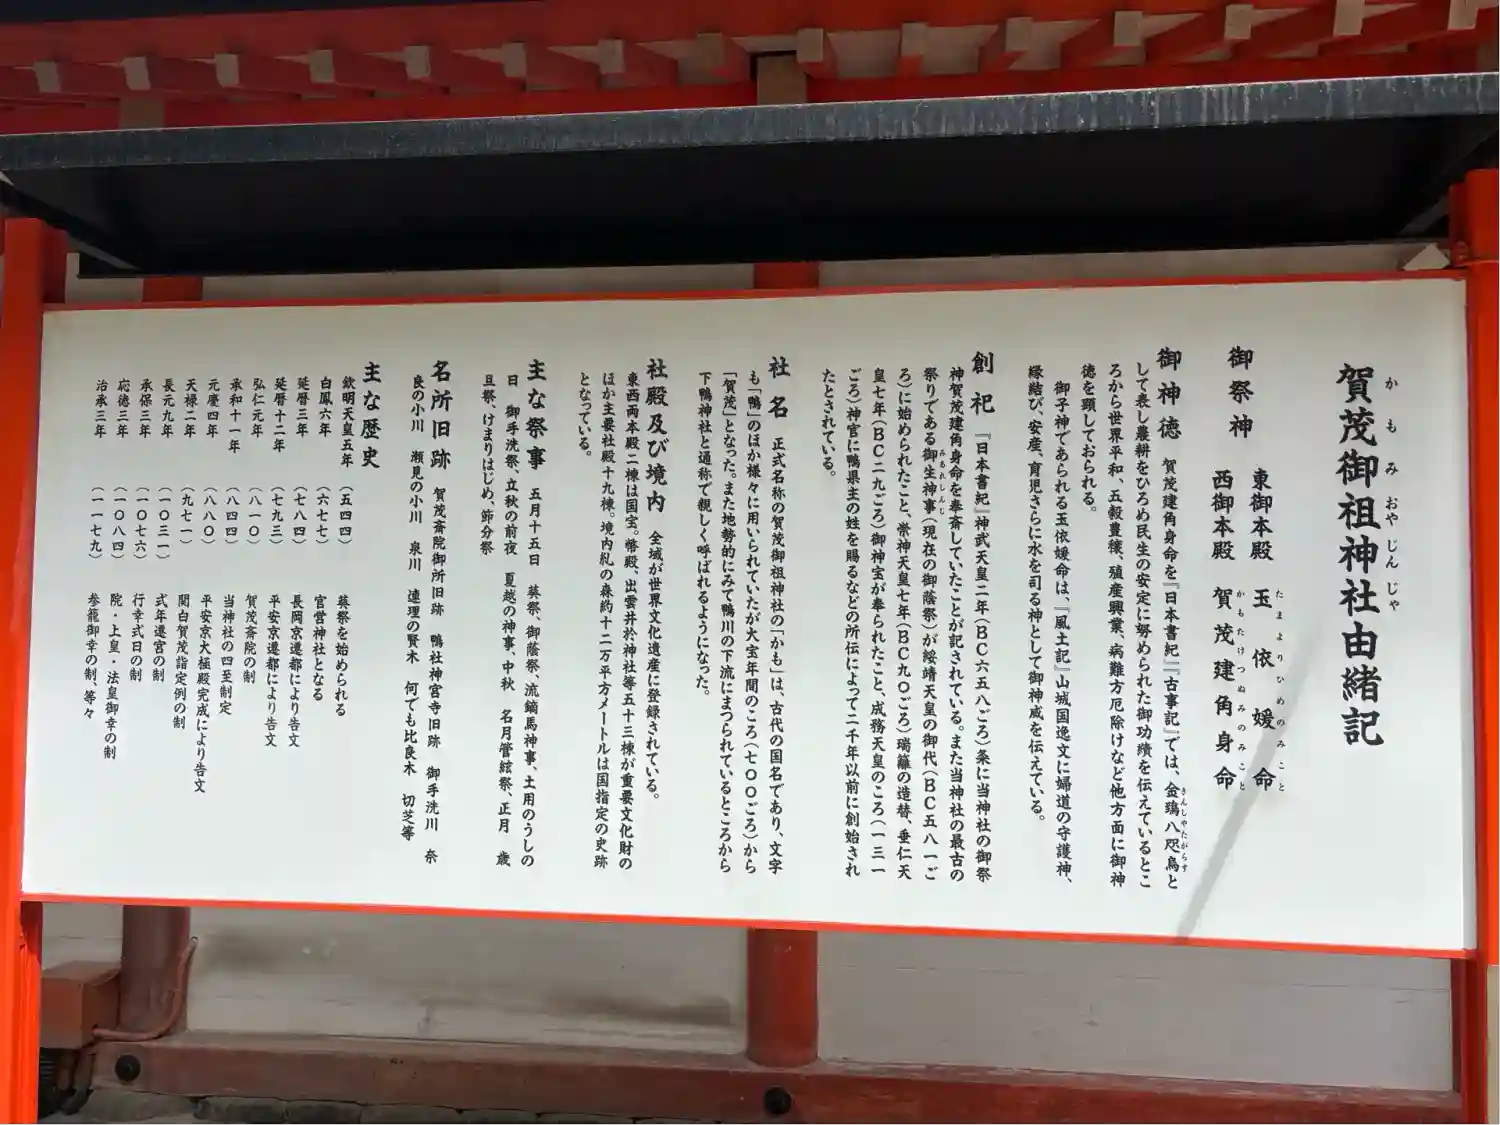 賀茂御祖神社由緒記
かもみおやじんじゃ
御祭神
東御本殿 玉依媛命
たまよりひめのみこと
西御本殿 賀茂建角身命
かもたけつぬみのみこと
御神徳 賀茂建角身命を『日本書紀』『古事記』では、金鵄八咫烏と
きんしやたがらす
して表し農耕をひろめ民生の安定に努められた御功績を伝えているとこ
ろから世界平和、五穀豊穣、殖産興業、病難方厄除けなど他方面に御神
徳を顕しておられる。
御子神であられる玉依媛命は、『風土記』山城国逸文に婦道の守護神、
縁結び、安産、育児さらに水を司る神として御神威を伝えている。
創祀 『日本書紀』神武天皇二年(BC六五八ごろ)条に当神社の御祭
神賀茂建角身命を奉斎していたことが記されている。また当神社の最古の
祭りである御生神事(現在の御蔭祭)が綏靖天皇の御代(BC五八一ご
みあれしんじ
ろ)に始められたこと、崇神天皇七年(BC九〇ごろ)瑞籬の造替、垂仁天
皇七年(BC二九ごろ)御神宝が奉られたこと、成務天皇のころ(一三一
ごろ)神宮に鴨県主の姓を賜るなどの所伝によって二千年以前に創始され
たとされている。
社名 正式名称の賀茂御祖神社の「かも」は、古代の国名であり、文字
も「鴨」のほか様々に用いられていたが大宝年間のころ(七〇〇ごろ)から
「賀茂」となった。また地勢的にみて鴨川の下流にまつられているところから
下鴨神社と通称で親しく呼ばれるようになった。
社殿及び境内 全域が世界文化遺産に登録されている。
東西両本殿二棟は国宝。幣殿、出雲井於神社等五十三棟が重要文化財の
ほか主要社殿十九棟。境内糺の森約十二万平方メートルは国指定の史跡
となっている。
主な祭事 五月十五日 葵祭、御蔭祭、流鏑馬神事、土用のうしの
日 御手洗祭、立秋の前夜 夏越の神事、中秋 名月管絃祭、正月 歳
旦祭、けまりはじめ、節分祭
名所旧跡 賀茂斎院御所旧跡 鴨社神宮寺旧跡 御手洗川 奈
良の小川 瀬見の小川 泉川 連理の賢木 何でも比良木 切芝等
主な歴史
欽明天皇五年 (五四四) 葵祭を始められる
白鳳六年 (六七七) 官営神社となる
延暦三年 (七八四) 長岡京遷都により告文
延暦十二年 (七九三) 平安京遷都により告文
弘仁元年 (八一〇) 賀茂斎院の制
承和十一年 (八四四) 当神社の四至制定
元慶四年 (八八〇) 平安京大極殿完成により告文
天禄二年 (九七一) 関白賀茂詣定例の制
長元九年 (一〇三一) 式年遷宮の制
承保三年 (一〇七六) 行幸式日の制
応徳三年 (一〇八四) 院・上皇・法皇御幸の制
治承三年 (一一七九) 参籠御幸の制、等々